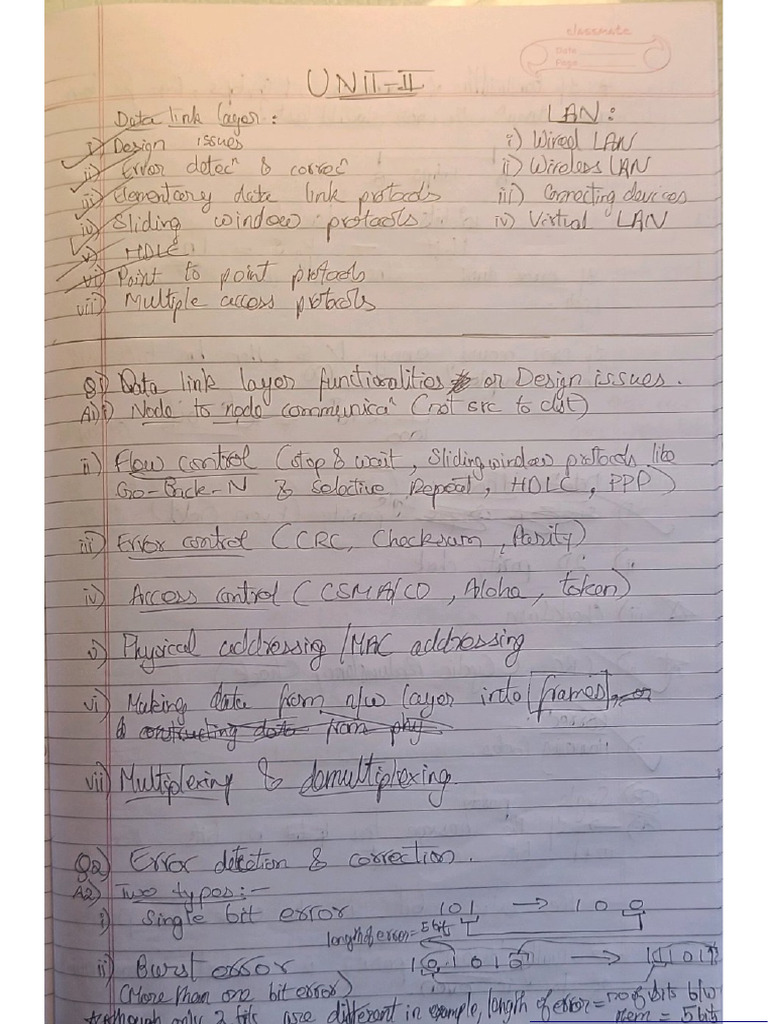 classmate
Date
Page
UNIT-II
Data link layer :
i) Design issues
ii) Error detecⁿ & correcⁿ
iii) Elementary data link protocols
iv) Sliding window protocols
v) HDLC
vi) Point to point protocols
vii) Multiple access protocols
LAN :
i) Wired LAN
ii) Wireless LAN
iii) Connecting devices
iv) Virtual LAN
Q1) Data link layer functionalities or Design issues.
A1) i) Node to node communicaⁿ (not src to dst)
ii) Flow control (stop & wait, Sliding window protocols like
Go-Back-N & Selective Repeat, HDLC, PPP)
iii) Error control (CRC, Checksum, Parity)
iv) Access control (CSMA/CD, Aloha, token)
v) Physical addressing /MAC addressing
vi) Making data from n/w layer into frames, or
& constructing data from phy
vii) Multiplexing & demultiplexing.
Q2) Error detection & correction.
A2) Two types:-
i) Single bit error 101 → 100
length of error = 5 bits
ii) Burst error →
(More than one bit error)
though only 2 bits are different in example, length of error = no of bits b/w
them = 5 bits